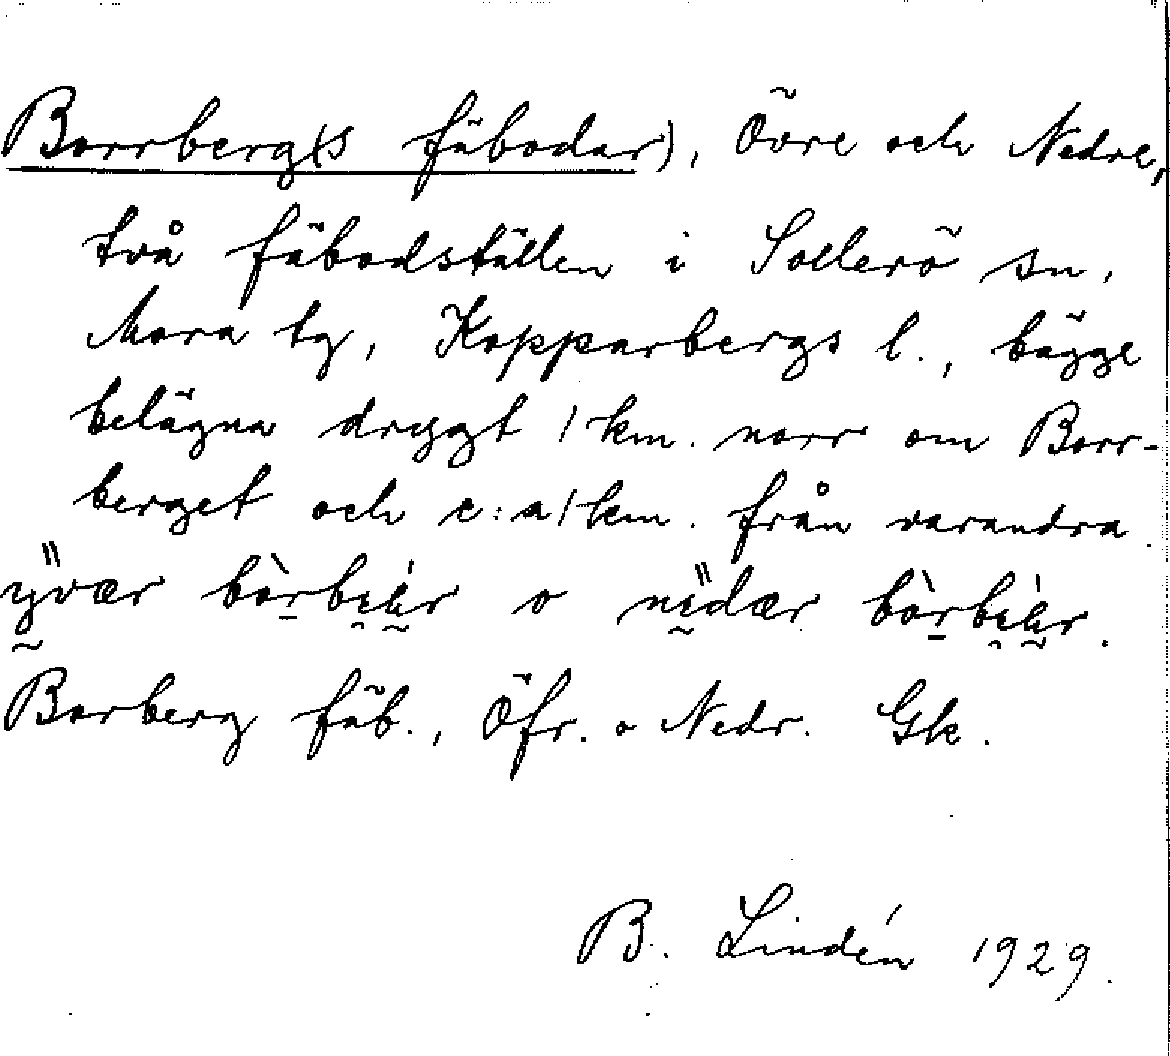 Borrberg(s fäbodar), Övre och Nedre,
två fäbodställen i Sollerö sn,
Mora tg, Kopparbergs l., bägge
belägna drygt 1 km. norr om Borr-
berget och c:a 1 km. från varandra.
o
Borberg fäb., Öfr. o Nedr. Gk.
B. Lindén 1929.